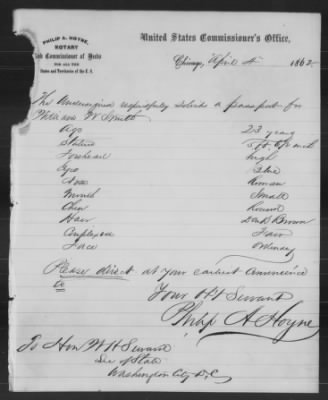 PHILIP A. HOYNE,
NOTARY
and Commissioner of Deeds
FOR ALL THE
States and Territories of the U. S.
United States Commissioner's Office,
Chicago, April 4th 1862
The Undersigned respectfully solicits a passport for
W Smith
Age 23 years
Stature 5 ft inch
Forehead high
Eyes Blue
Nose Roman
Mouth Small
Chin Round
Hair Dark Brown
Complexion Fair
Face Ordinary
Please direct at your earliest convenience
to
Your Obt Servant
Philip A Hoyne
To Hon W H Seward
Sec of State
Washington City D.C.